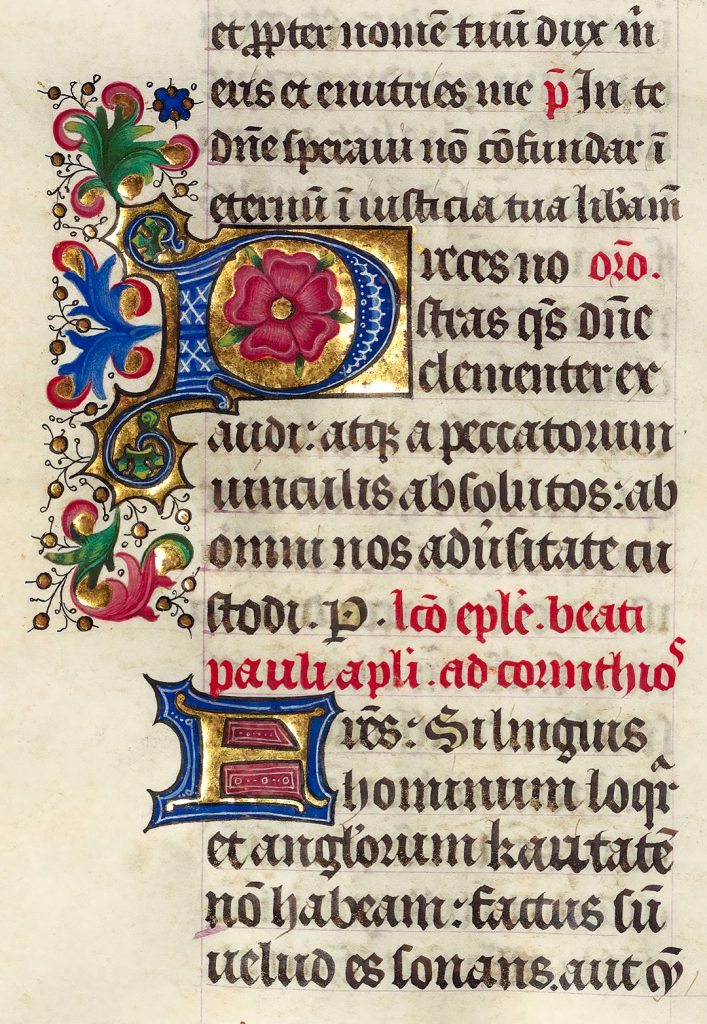 et ꝓpter nomē tuū dux m̄
eris et enutries me p̄ In te
dn̄e speraui nō cōfundar ī
eternū ī iusticia tua libam̄
Preces no or̄o.
stras qs̄ dn̄e
clementer ex
audi: atqꝫ a peccatorum
uinculis absolutos: ab
omni nos adūsitate cu
stodi. P. lc̄o eplē. beati
pauli apli. ad corinthios
Frēs: Si linguis
hominum loqr̄
et angl'orum karitatē
nō habeam: factus sū
uelud es sonans. aut cȳ